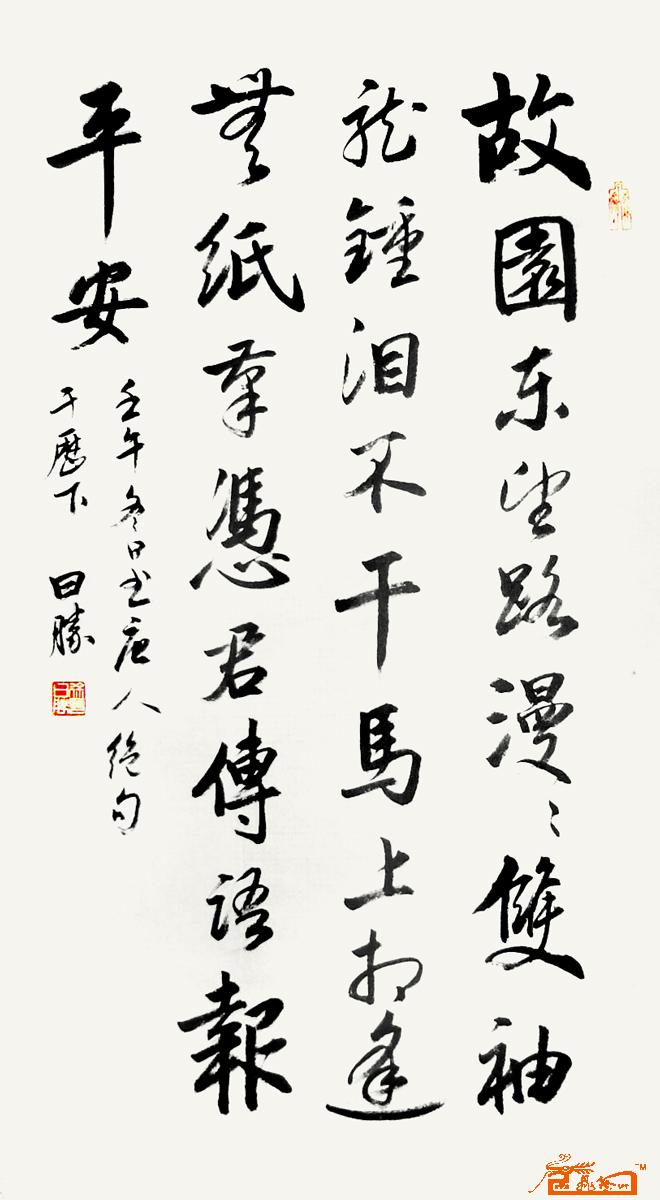 故園东望路漫〻雙袖
龙鍾泪不干馬上相逢
無紙筆憑君傳語報
平安
壬午冬日书唐人绝句
于歷下 日勝